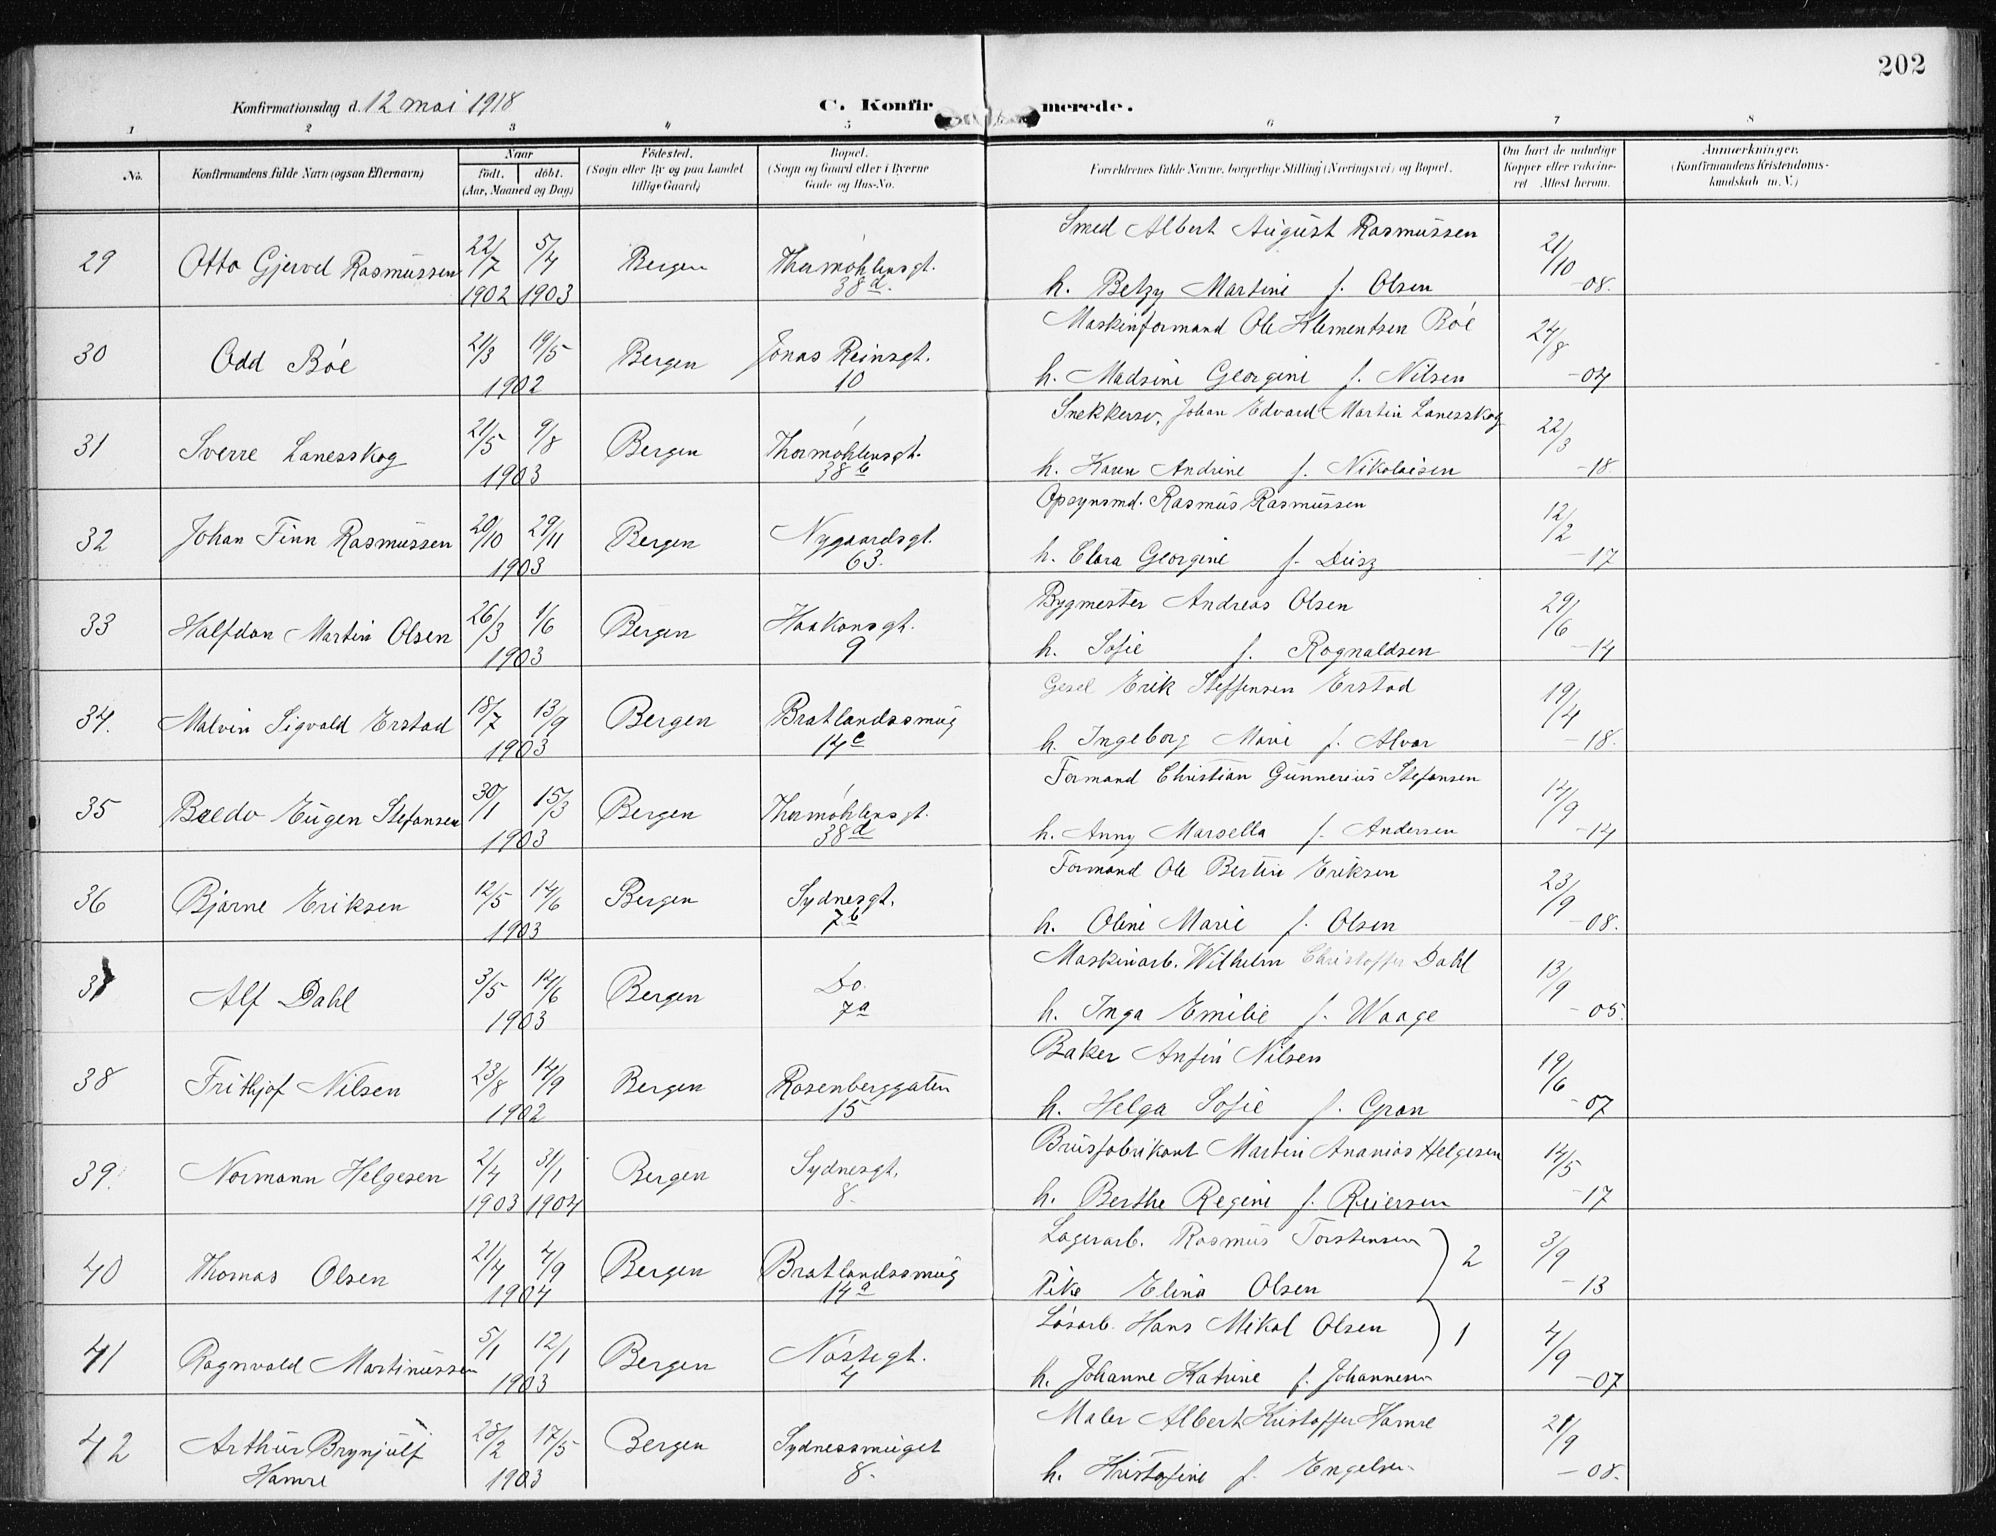 202
Konfirmationsdag d. 12 mai 1918
C. Konfir merede.
1 2 3 4 5 6 7 8
No. Konfirmandens fulde Navn (ogsaa Efternavn) Naar født. døbt. (Aar, Maaned og Dag) Fødested. (Sogn eller By og paa Landet tillige Gaard) Bopæl. (Sogn og Gaard eller i Byerne Gade og Hus-No. Forældrenes fulde Navne, borgerlige Stilling (Næringsvei) og Bopæl. Om havt de naturlige Kopper eller vaccineret Attest herom. Anmærkninger. (Konfirmandens Kristendomskundskab m. V.)
Smed Albert August Rasmussen
29 Otto Gjervd Rasmussen 22/7 1902 5/4 1903 Bergen Thormøhlensgt. 38d. 21/10 -08.
h. Betzy Martine f. Olsen
Maskinformand Ole Klementsen Bøe
30 Odd Bøe 21/3 19/5 1902 Bergen Jonas Reinsgt. 10 24/8 -04
h. Madsine Georgine f. Nilsen
Snekkersv. Johan Edvard Martin Lanesskog
31 Sverre Lanesskog 21/5 9/8 1903 Bergen Thormøhlensgt. 38b 22/3 -18.
h. Karen Andrine f. Nikolaisen
Opsynsmd. Rasmus Rasmussen
32 Johan Finn Rasmussen 20/10 29/11 1903 Bergen Nygaardsgt. 63. 12/2 -17
h. Clara Georgine f. Dusz
Bygmester Andreas Olsen
33 Halfdan Martin Olsen 26/3 1/6 1903 Bergen Haakonsgt. 9 29/6 -14
h. Sofie f. Rognaldsen
Gesel Erik Steffensen Erstad
34. Malvin Sigvald Erstad 18/7 13/9 1903 Bergen Bratlandssmug 14c 19/4 -18.
h. Ingeborg Marie f. Alvar
Formand Christian Gunnerius Stefansen
35 Baldo Eugen Stefansen 30/1 15/3 1903 Bergen Thormøhlensgt. 38d 14/9 -14
h. Anny Marsella f. Andersen
Formand Ole Bertin Eriksen
36 Bjarne Eriksen 12/5 14/6 1903 Bergen Sydnesgt. 7b 23/9 -08.
h. Oline Marie f. Olsen
Maskinarb. Wilhelm Christoffer Dahl
37 Alf Dahl 3/5 14/6 1903 Bergen Do. 7a 13/9 -05.
h. Inga Emilie f. Waage
Baker Anfin Nilsen
38 Frithjof Nilsen 23/8 14/9 1902 Bergen Rosenberggaten 15 19/6 -07
h. Helga Sofie f. Gran
Brusfabrikant Martin Ananias Helgesen
39. Normann Helgesen 2/4 1903 31/1 1904 Bergen Sydnesgt. 8. 14/5 -17
h. Berthe Regine f. Reiersen
Lagerarb. Rasmus Torstensen
40 Thomas Olsen 21/4 4/9 1904 Bergen Bratlandssmug 14a 2 3/9 -13
Pike Elina Olsen
Løsarb. Hans Mikal Olsen
41 Ragnvald Martinussen 5/1 12/1 1903 Bergen Nøstegt. 4 1 4/9 -07
h. Johanne Katrine f. Johannesen
Maler Albert Kristoffer Hamre
42 Arthur Brynjulf Hamre 28/2 17/5 1903 Bergen Sydnessmuget 8. 21/9 -08.
h. Kristofine f. Engelsen